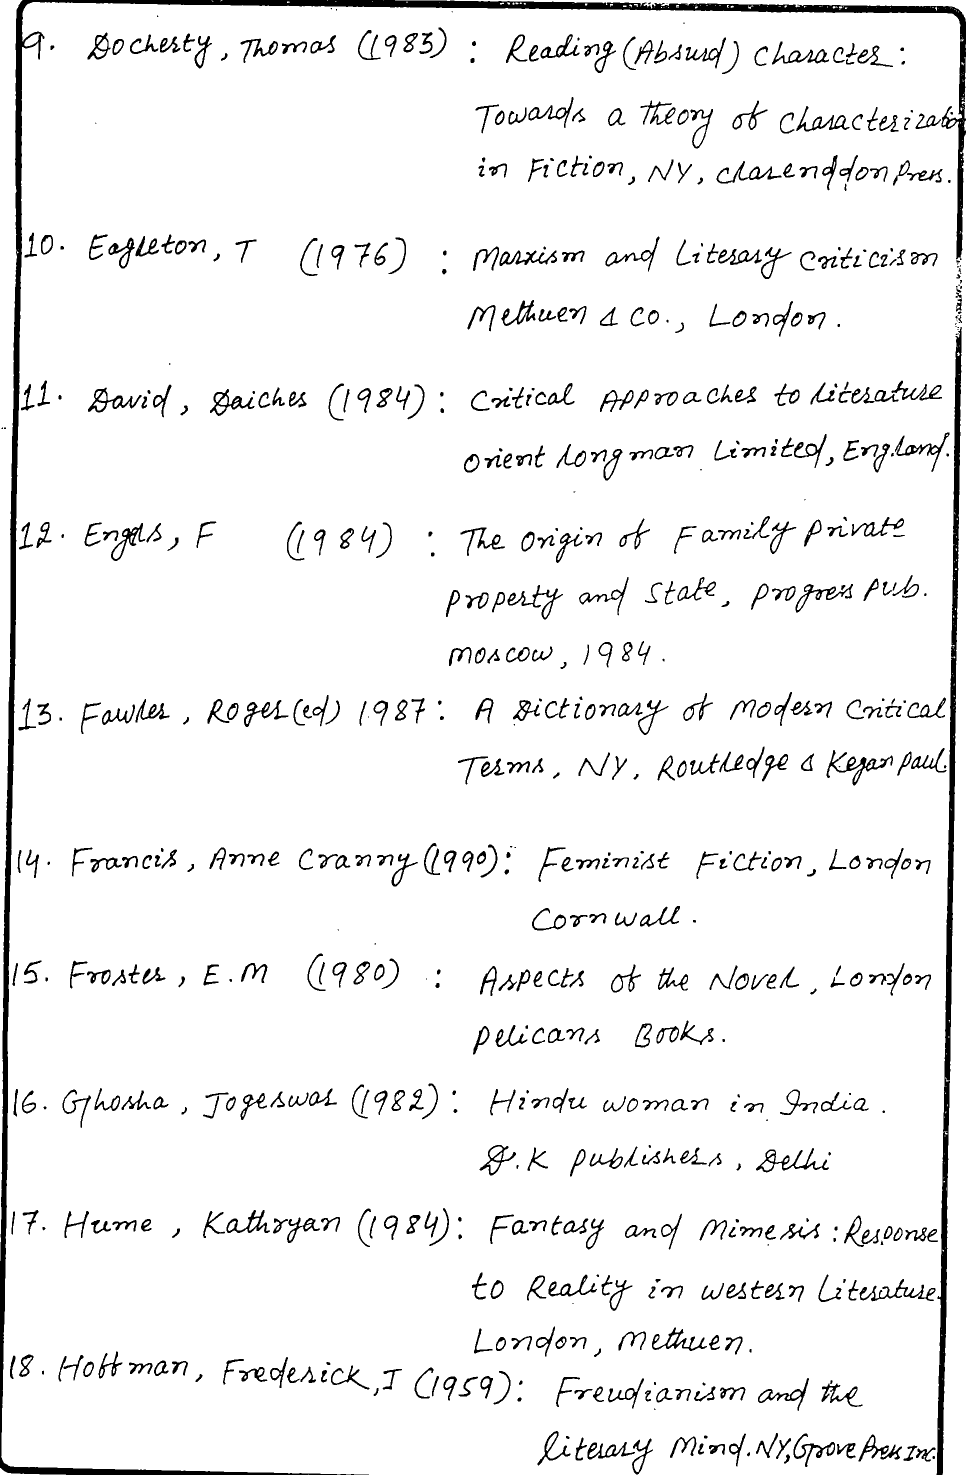 9. Docherty, Thomas (1983) : Reading (Absurd) Character :
Towards a Theory of Characterization
in Fiction, NY, Clarenddon Press.
10. Eagleton, T (1976) : Marxism and Literary Criticism
Methuen & Co., London.
11. David, Daiches (1984) : Critical Approaches to Literature
Orient Longman Limited, England.
12. Engels, F (1984) : The Origin of Family Private
Property and State, Progress Pub.
Moscow, 1984.
13. Fawler, Roger (ed) 1987 : A Dictionary of Modern Critical
Terms, NY, Routledge & Kegan Paul.
14. Francis, Anne Cranny (1990) : Feminist Fiction, London
Cornwall.
15. Froster, E.M (1980) : Aspects of the Novel, London
Pelicans Books.
16. Ghosha, Jogeswar (1982) : Hindu woman in India.
D.K Publishers, Delhi
17. Hume, Kathryan (1984) : Fantasy and Mimesis : Response
to Reality in western Literature.
London, Methuen.
18. Hoffman, Frederick, J (1959) : Freudianism and the
literary Mind. NY, Grove Press Inc.